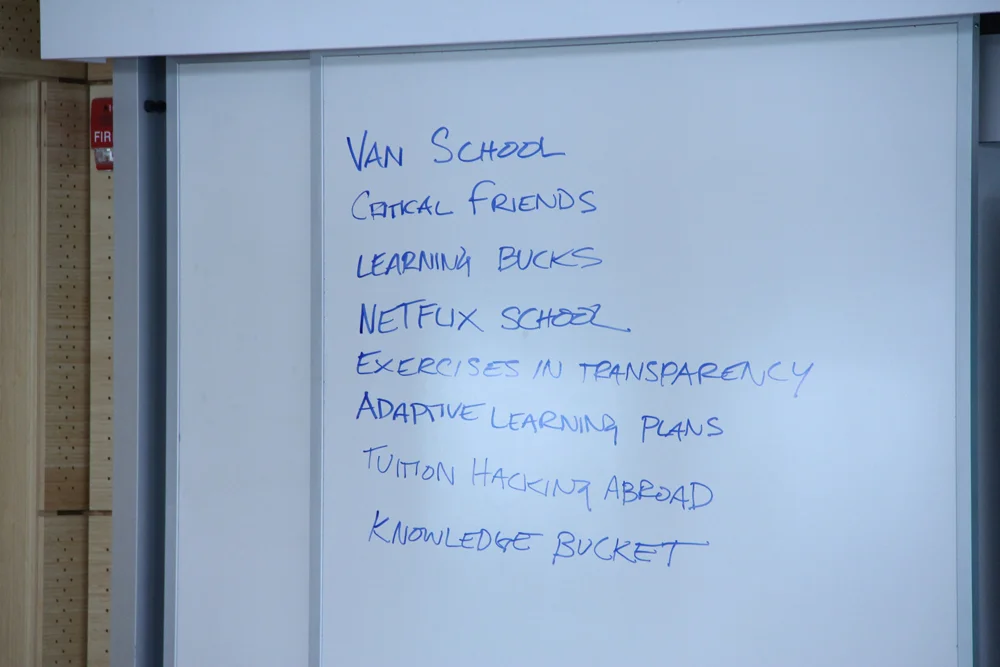 FIR
VAN SCHOOL
CRITICAL FRIENDS
LEARNING BUCKS
NETFLIX SCHOOL
EXERCISES IN TRANSPARENCY
ADAPTIVE LEARNING PLANS
TUITION HACKING ABROAD
KNOWLEDGE BUCKET